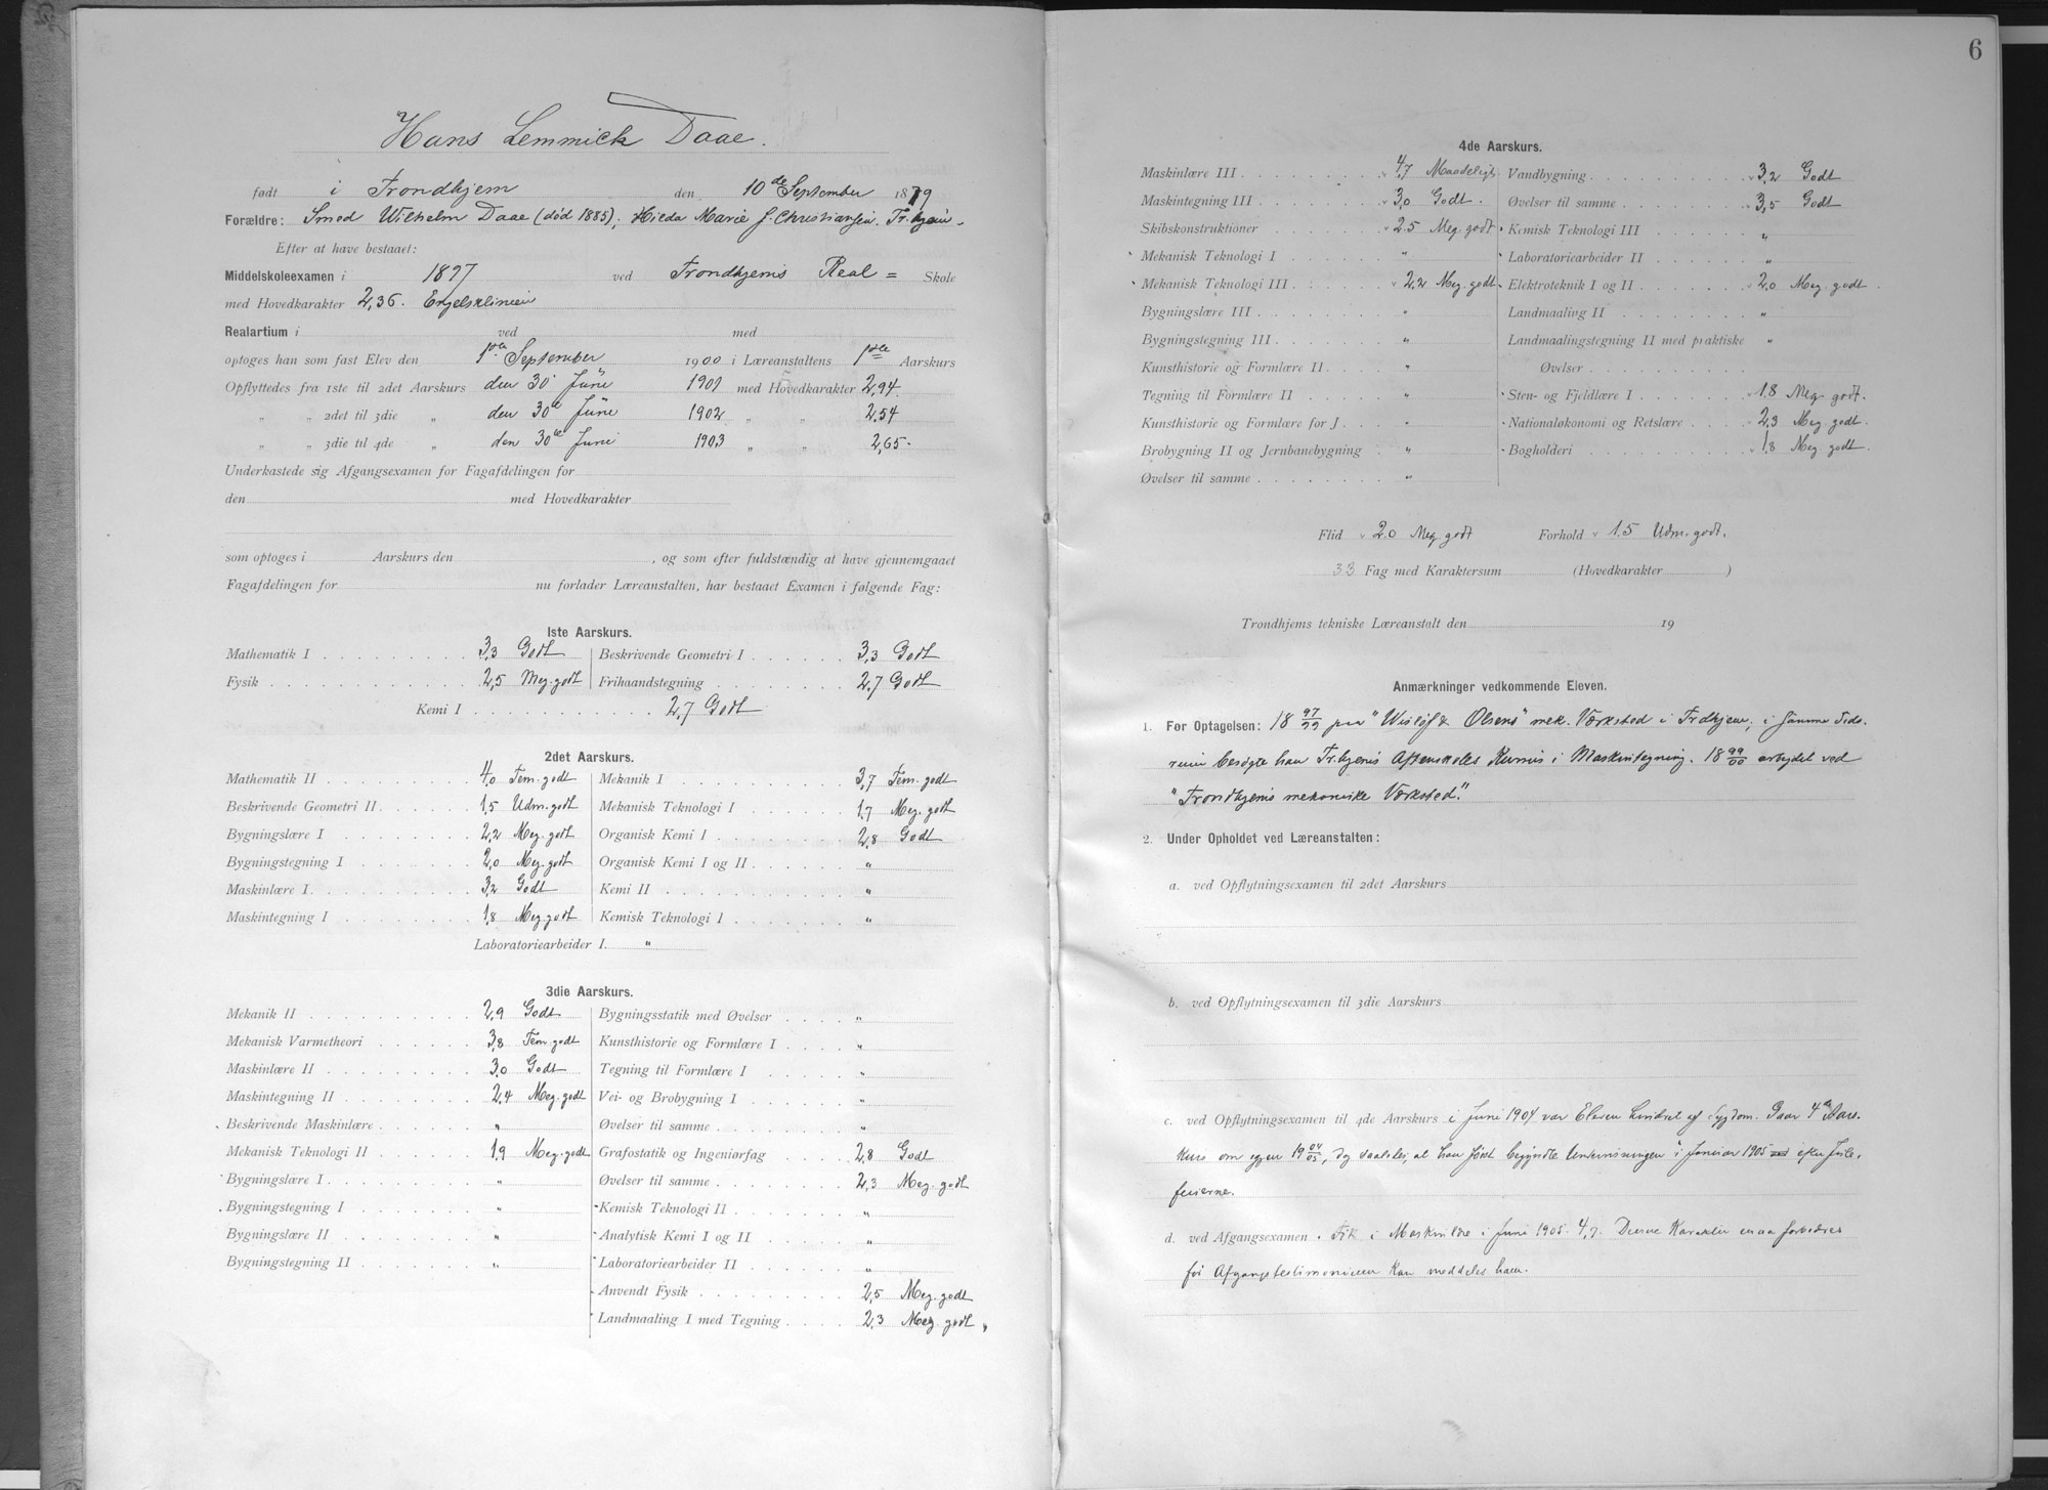 Hans Lemmick Daae.
født i Trondhjem den 10de September 1879
Forældre: Smed Wilhelm Daae (død 1885), Hilda Marie f. Christiansen. Tr.hjem.
Efter at have bestaaet:
Middelskoleexamen i 1897 ved Trondhjems Real = Skole
med Hovedkarakter 2,36. Engelsklinien
Realartium i ved med
optoges han som fast Elev den 1ste September 1900 i Læreanstaltens 1ste Aarskurs
Opflyttedes fra 1ste til 2det Aarskurs den 30 Juni 1901 med Hovedkarakter 2,94.
" " 2det til 3die " den 30te Juni 1902 " " 2,54
" " 3die til 4de " den 30te Juni 1903 " " 2,65.
Underkastede sig Afgangsexamen for Fagafdelingen for
den med Hovedkarakter
som optoges i Aarskurs den , og som efter fuldstændig at have gjennemgaaet
Fagafdelingen for nu forlader Læreanstalten, har bestaaet Examen i følgende Fag:
1ste Aarskurs.
Mathematik I 3,3 Godt Beskrivende Geometri I 3,3 Godt
Fysik 2,5 Meg. godt Frihaandstegning 2,7 Godt
Kemi I 2,7 Godt
2det Aarskurs.
Mathematik II 4,0 Tem. godt Mekanik I 3,7 Tem. godt
Beskrivende Geometri II 1,5 Udm. godt Mekanisk Teknologi I 1,7 Meg. godt
Bygningslære I 2,2 Meg. godt Organisk Kemi I 2,8 Godt
Bygningstegning I 2,0 Meg. godt Organisk Kemi I og II "
Maskinlære I 3,2 Godt Kemi II "
Maskintegning I 1,8 Meg. godt Kemisk Teknologi I "
Laboratoriearbeider I. "
3die Aarskurs.
Mekanik II 2,9 Godt Bygningsstatik med Øvelser "
Mekanisk Varmetheori 3,8 Tem. godt Kunsthistorie og Formlære I "
Maskinlære II 3,0 Godt Tegning til Formlære I "
Maskintegning II 2,4 Meg. godt Vei- og Brobygning I "
Beskrivende Maskinlære " Øvelser til samme "
Mekanisk Teknologi II 1,9 Meg. godt Grafostatik og Ingeniørfag 2,8 Godt
Bygningslære I " Øvelser til samme 2,3 Meg. godt
Bygningstegning I " Kemisk Teknologi II "
Bygningslære II " Analytisk Kemi I og II "
Bygningstegning II " Laboratoriearbeider II "
Anvendt Fysik 2,5 Meg. godt
Landmaaling I med Tegning 2,3 Meg. godt
6
4de Aarskurs.
Maskinlære III 4,7 Maadeligt Vandbygning 3,2 Godt
Maskintegning III 3,0 Godt. Øvelser til samme 3,5 Godt
Skibskonstruktioner 2.5 Meg. godt Kemisk Teknologi III "
Mekanisk Teknologi I " Laboratoriearbeider II "
Mekanisk Teknologi III 2,2 Meg. godt Elektroteknik I og II 2,0 Meg. godt.
Bygningslære III " Landmaaling II "
Bygningstegning III " Landmaalingstegning II med praktiske "
Kunsthistorie og Formlære II " Øvelser
Tegning til Formlære II " Sten- og Fjeldlære I 1.8 Meg. godt.
Kunsthistorie og Formlære for J " Nationaløkonomi og Retslære 2,3 Meg. godt.
Brobygning II og Jernbanebygning " Bogholderi 1,8 Meg. godt.
Øvelser til samme "
Flid 2.0 Meg godt Forhold 1.5 Udm. godt.
33 Fag med Karaktersum (Hovedkarakter )
Trondhjems tekniske Læreanstalt den 19
Anmærkninger vedkommende Eleven.
1. Før Optagelsen: 18 97/99 paa "Wisløf & Olsens" mek. Værksted i Trdhjem; i samme Tids-
rum besøgte han Tr.hjems Aftenskoles Kursus i Maskintegning. 18 99/00 arbejdet ved
"Trondhjems mekaniske Værksted".
2. Under Opholdet ved Læreanstalten:
a. ved Opflytningsexamen til 2det Aarskurs
b. ved Opflytningsexamen til 3die Aarskurs
c. ved Opflytningsexamen til 4de Aarskurs i Juni 1904 var Eleven hindret af Sygdom. Gaar 4de Aars-
kurs om igjen 19 04/05, dog saaledes, at han først begyndte Undervisningen i Januar 1905 efter Jule-
ferierne.
d. ved Afgangsexamen. Fik i Maskinlære i Juni 1905 4,7. Denne Karakter maa forbedres
før Afgangstestimonium kan meddeles ham.